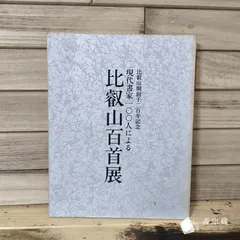 比叡山開創千二百年記念
現代書家一〇〇人による
比叡山百首展